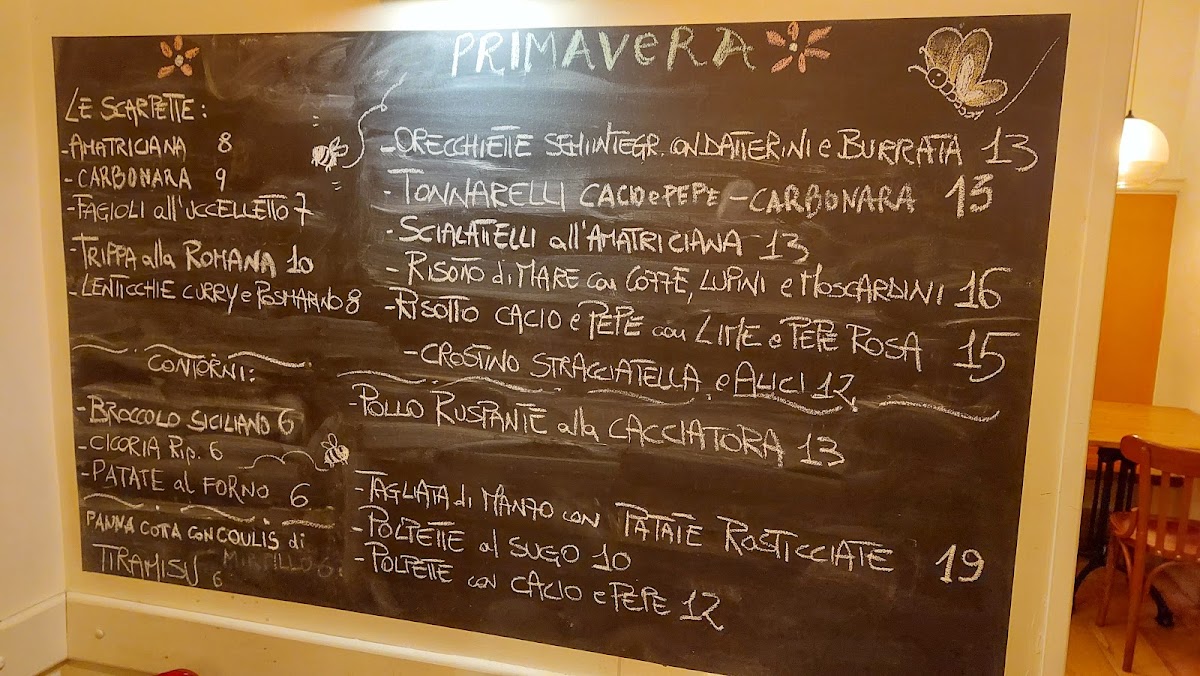 PRIMAVERA
LE SCARPETTE:
-AMATRICIANA 8
-CARBONARA 9
-FAGIOLI all'UCCELLETTO 7
-TRIPPA alla ROMANA 10
-LENTICCHIE CURRY e ROSMARINO 8
CONTORNI:
-BROCCOLO SICILIANO 6
-CICORIA RIP. 6
-PATATE al FORNO 6
PANNA COTTA CON COULIS di
MIRTILLO 6.
TIRAMISÙ 6
-ORECCHIETTE SEMINTEGR. con DATTERINI e BURRATA 13
-TONNARELLI CACIO e PEPE - CARBONARA 13
-SCIALATELLI all'AMATRICIANA 13
-RISOTTO di MARE con COZZE, LUPINI e MOSCARDINI 16
-RISOTTO CACIO e PEPE con LIME e PEPE ROSA 15
-CROSTINO STRACCIATELLA e ALICI 12
-POLLO RUSPANTE alla CACCIATORA 13
-TAGLIATA di MANZO con PATATE ROSTICCIATE 19
-POLPETTE al SUGO 10
-POLPETTE con CACIO e PEPE 12